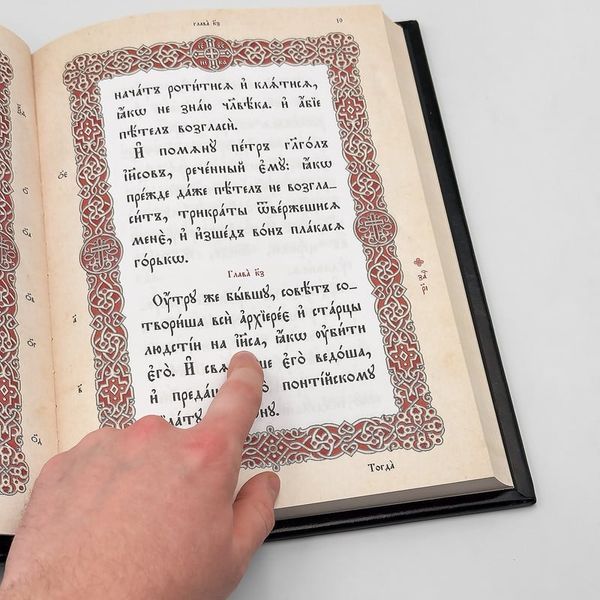 глава̀ к҃з
начáтъ роти́тися и҆ кля́тися,
ꙗ҆́кѡ не знáю чл҃вѣ́ка. и҆ а҆́бїе
пѣ́тель возгласѝ.
И҆ помянꙋ̀ пе́тръ гл҃го́лъ
і҆и҃совъ, рече́нный є҆мꙋ̀: ꙗ҆́кѡ
пре́жде дáже пѣ́тель не возгла-
си́тъ, трикрáты ѿве́ржешися
менє̀, и҆ и҆зше́дъ во́нъ плáкася
го́рькѡ.
Глава̀ к҃з
Оу҆́трꙋ же бы́вшꙋ, совѣ́тъ со-
твори́ша всѝ а҆рхїере́є и҆ стáрцы
лю́дстїи на і҆и҃са, ꙗ҆́кѡ ᲂу҆би́ти
є҆го̀. И҆ є҆го̀ ведо́ша,
и҆ понті́йскомꙋ
за҃
Тогда̀